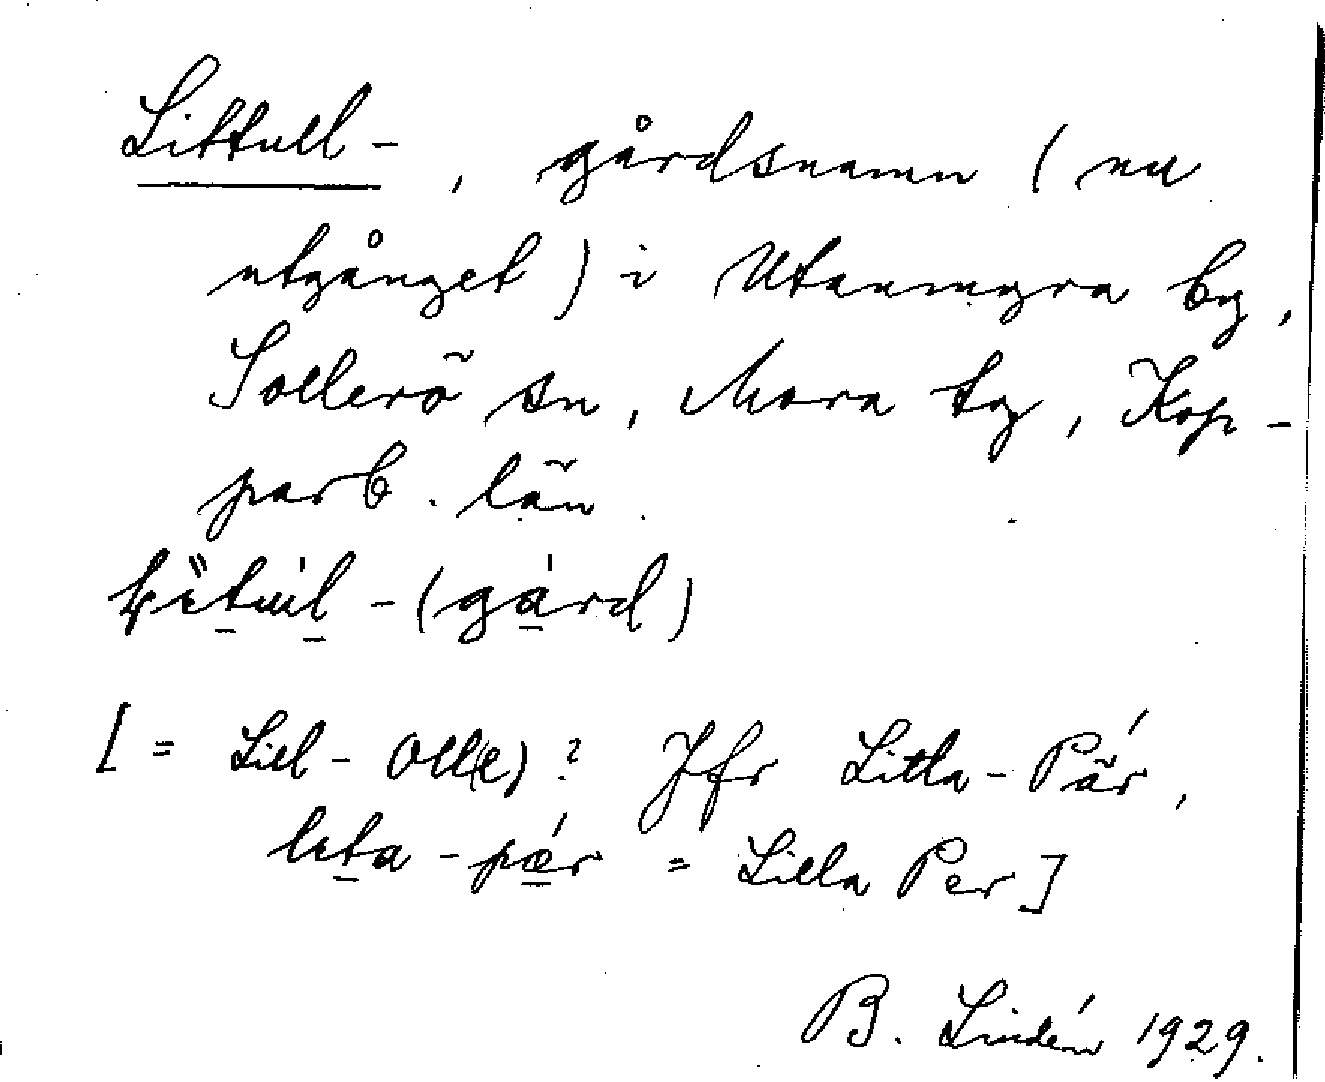 Littull-, gårdsnamn (nu
utgånget) i Utanmyra by,
Sollerö sn, Mora tg, Kop-
parb. län.
-(gård)
[= Lill-Oll(e)? Jfr Litla-Pär,
lita-pær = Lilla Per]
B. Lindén 1929.